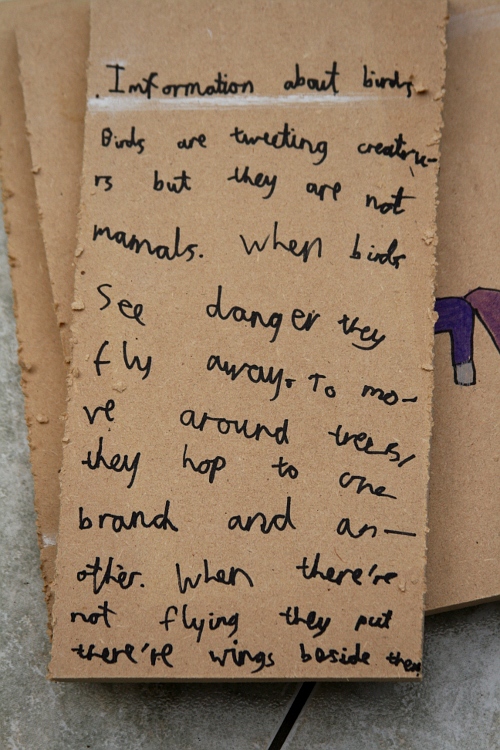 . Imformation about birds
Birds are tweeting creature-
rs but they are not
mamals. When birds
See danger they
fly away. To mo-
ve around trees/
they hop to one
brand and an-
other. When there're
not flying they put
there're wings beside them